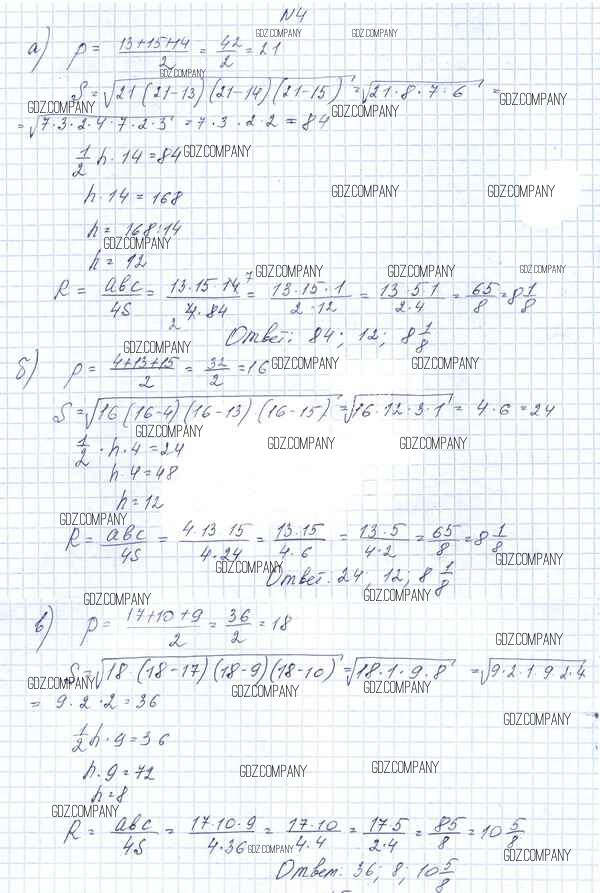 N4
GDZ.COMPANY GDZ.COMPANY
а) p = (13+15+14)/2 = 42/2 = 21
GDZ.COMPANY
S = √(21(21-13)(21-14)(21-15)) = √(21·8·7·6) =
GDZ.COMPANY GDZ.COMPANY GDZ.COMPANY
= √(7·3·2·4·7·2·3) = 7·3·2·2 = 84
1/2 h·14 = 84 GDZ.COMPANY
h·14 = 168 GDZ.COMPANY GDZ.COMPANY
h = 168:14
GDZ.COMPANY
h = 12
GDZ.COMPANY GDZ.COMPANY GDZ.COMPANY
R = abc/4S = 13·15·14 7/2 4·84 = 13·15·1/2·12 = 13·5·1/2·4 = 65/8 = 8 1/8
Ответ: 84; 12; 8 1/8
GDZ.COMPANY
б) p = (4+13+15)/2 = 32/2 = 16 GDZ.COMPANY GDZ.COMPANY
S = √(16(16-4)(16-13)(16-15)) = √(16·12·3·1) = 4·6 = 24
GDZ.COMPANY
1/2·h·4 = 24 GDZ.COMPANY GDZ.COMPANY
h·4 = 48
h = 12
GDZ.COMPANY
R = abc/4S = 4·13·15/4·24 = 13·15/4·6 = 13·5/4·2 = 65/8 = 8 1/8
GDZ.COMPANY GDZ.COMPANY
Ответ: 24; 12; 8 1/8
GDZ.COMPANY GDZ.COMPANY
в) p = (17+10+9)/2 = 36/2 = 18
GDZ.COMPANY
S = √(18·(18-17)(18-9)(18-10)) = √(18·1·9·8) = √(9·2·1·9·2·4)
GDZ.COMPANY GDZ.COMPANY GDZ.COMPANY
= 9·2·2 = 36
GDZ.COMPANY
1/2 h·9 = 36
h·9 = 72 GDZ.COMPANY GDZ.COMPANY
h = 8
GDZ.COMPANY
R = abc/4S = 17·10·9/4·36 = 17·10/4·4 = 17·5/2·4 = 85/8 = 10 5/8
GDZ.COMPANY GDZ.COMPANY
Ответ: 36; 8; 10 5/8